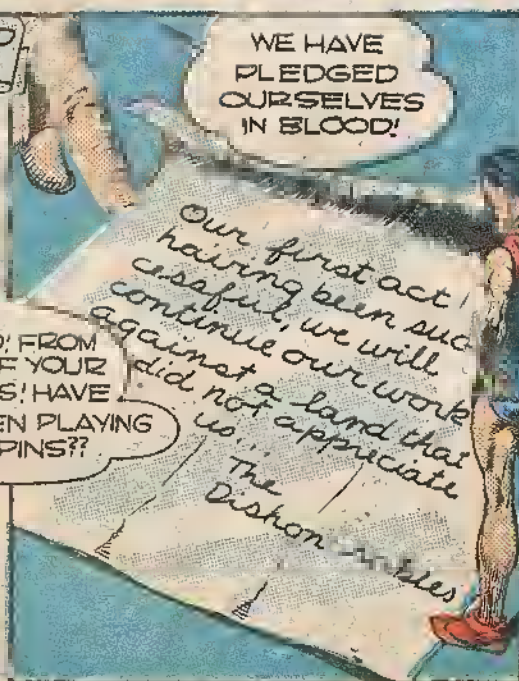 WE HAVE
PLEDGED
OURSELVES
IN BLOOD!
Our first act
having been suc
cessful, we will
continue our work
against a land that
did not appreciate
us...
The
Dishonorables
FROM
F YOUR
S! HAVE
EN PLAYING
PINS??